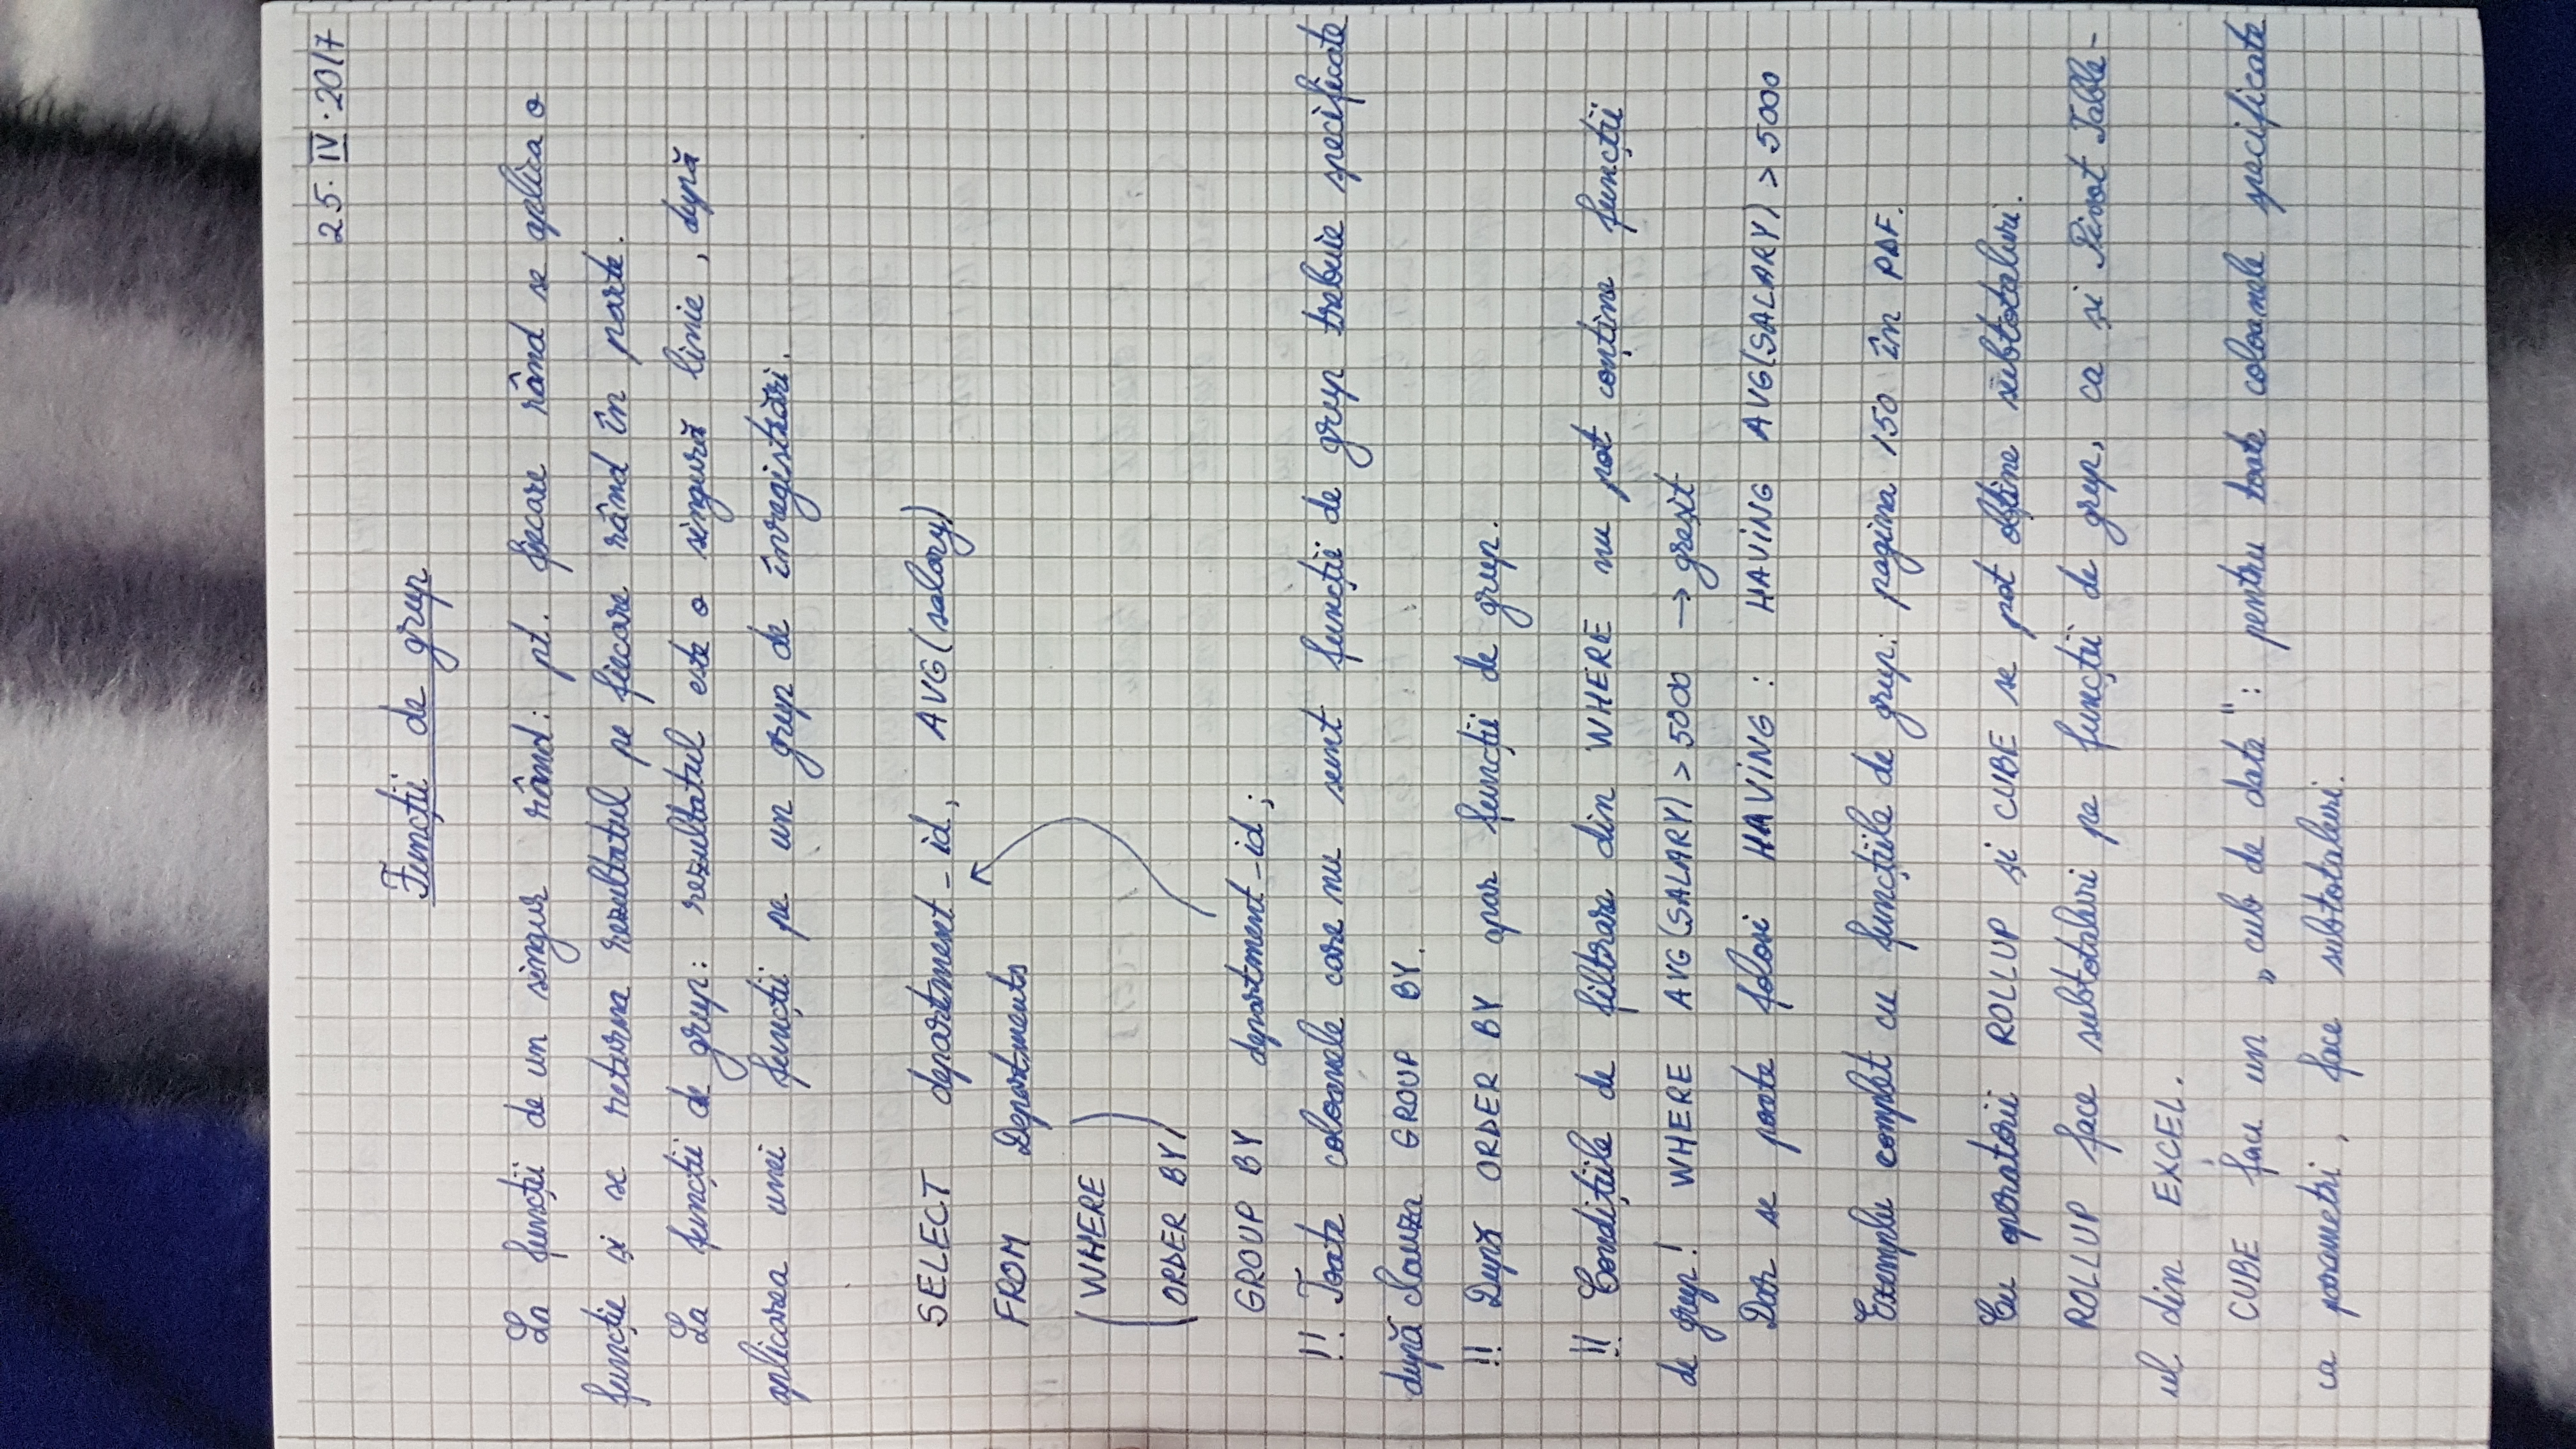 25. IV. 2017
Funcții de grup
La funcții de un singur rând: pt. fiecare rând se aplica o
funcție și se returna rezultatul pe fiecare rând în parte.
La funcții de grup: rezultatul este o singură linie, după
aplicarea unei funcții pe un grup de înregistrări.
SELECT department_id, AVG(salary)
FROM Departments
(WHERE
ORDER BY)
GROUP BY department_id;
!! Toate coloanele care nu sunt funcții de grup trebuie specificate
după clauza GROUP BY.
!! După ORDER BY apar funcții de grup.
!! Condițiile de filtrare din WHERE nu pot conține funcții
de grup! WHERE AVG(SALARY) > 5000 → greșit
Dar se poate folosi HAVING: HAVING AVG(SALARY) > 5000
Exemplu complet cu funcțiile de grup: pagina 150 în PDF.
Cu operatorii ROLLUP și CUBE se pot obține subtotaluri.
ROLLUP face subtotaluri pe funcții de grup, ca și Pivot Table-
ul din EXCEL.
CUBE face un „cub de date": pentru toate coloanele specificate
ca parametri, face subtotaluri.